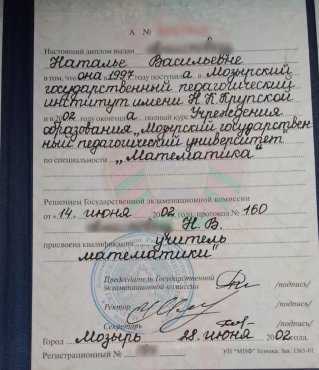 А №
Настоящий диплом выдан
Наталье Васильевне
в том, что она 1997 году поступил а Мозырский
государственный педагогический
институт имени Н. К. Крупской
и в 2002 окончил а полный курс Учреждения
образования "Мозырский государствен-
ный педагогический университет
по специальности „Математика"
Решением Государственной экзаменационной комиссии
от «14» июня 2002 года, протокол № 160
Н. В.
присвоена квалификация „учитель
математики"
Председатель Государственной
экзаменационной комиссии /подпись/
Ректор /подпись/
Секретарь /подпись/
Город Мозырь 28 июня 2002 года.
Регистрационный № УП "МПФ" Гознака. Зак. 1365-01